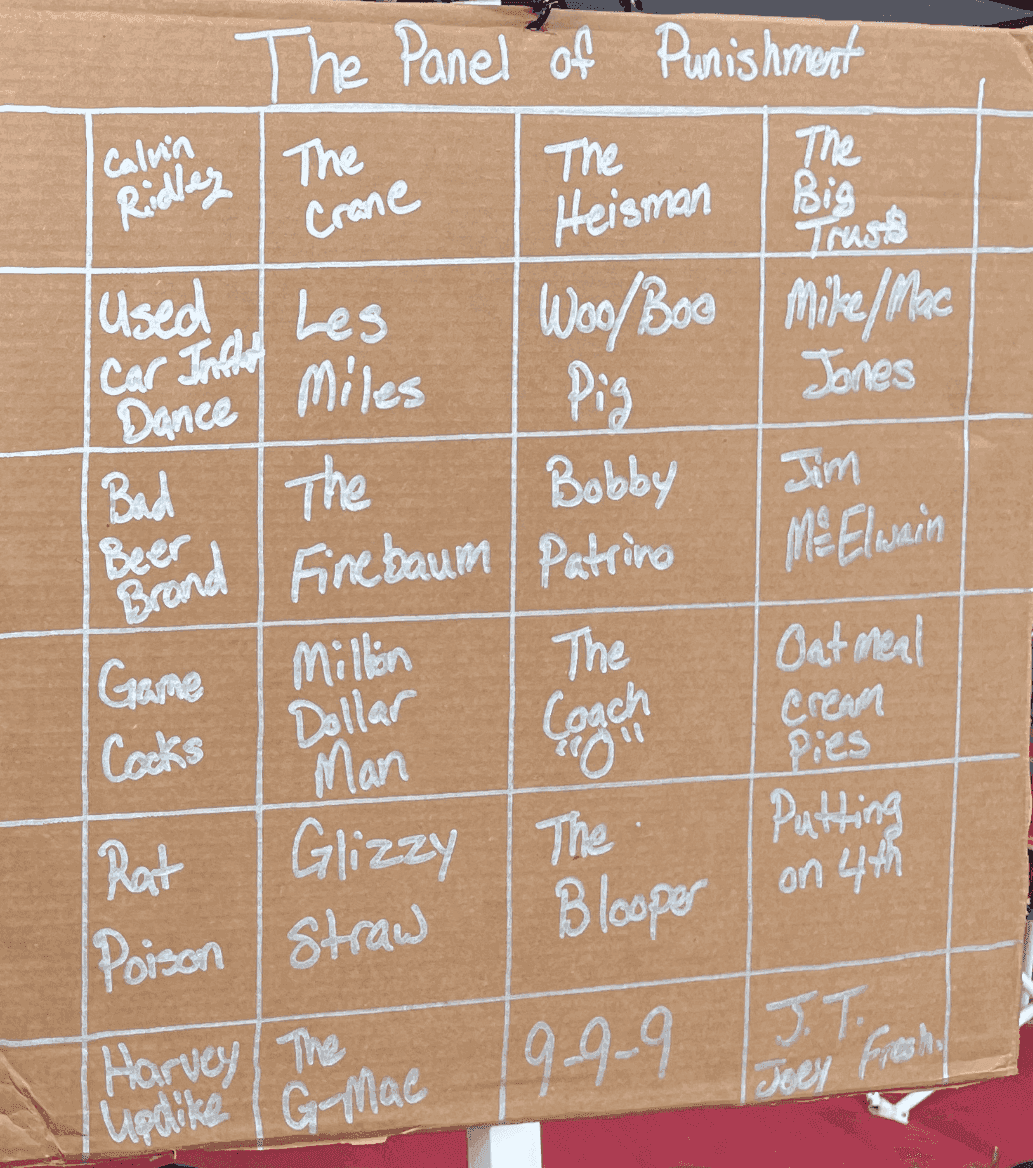 The Panel of Punishment
Calvin
Ridley
The
Crane
The
Heisman
The
Big
Trusts
Used
Car Inflat
Dance
Les
Miles
Woo/Boo
Pig
Mike/Mac
Jones
Bad
Beer
Brand
The
Finebaum
Bobby
Patrino
Jim
Mc Elwain
Game
Cocks
Million
Dollar
Man
The
Coach
"O"
Oatmeal
cream
pies
Rat
Poison
Glizzy
Straw
The
Blooper
Putting
on 4th
Harvey
Updike
The
G-Mac
9-9-9
J. T.
Joey Fresh.